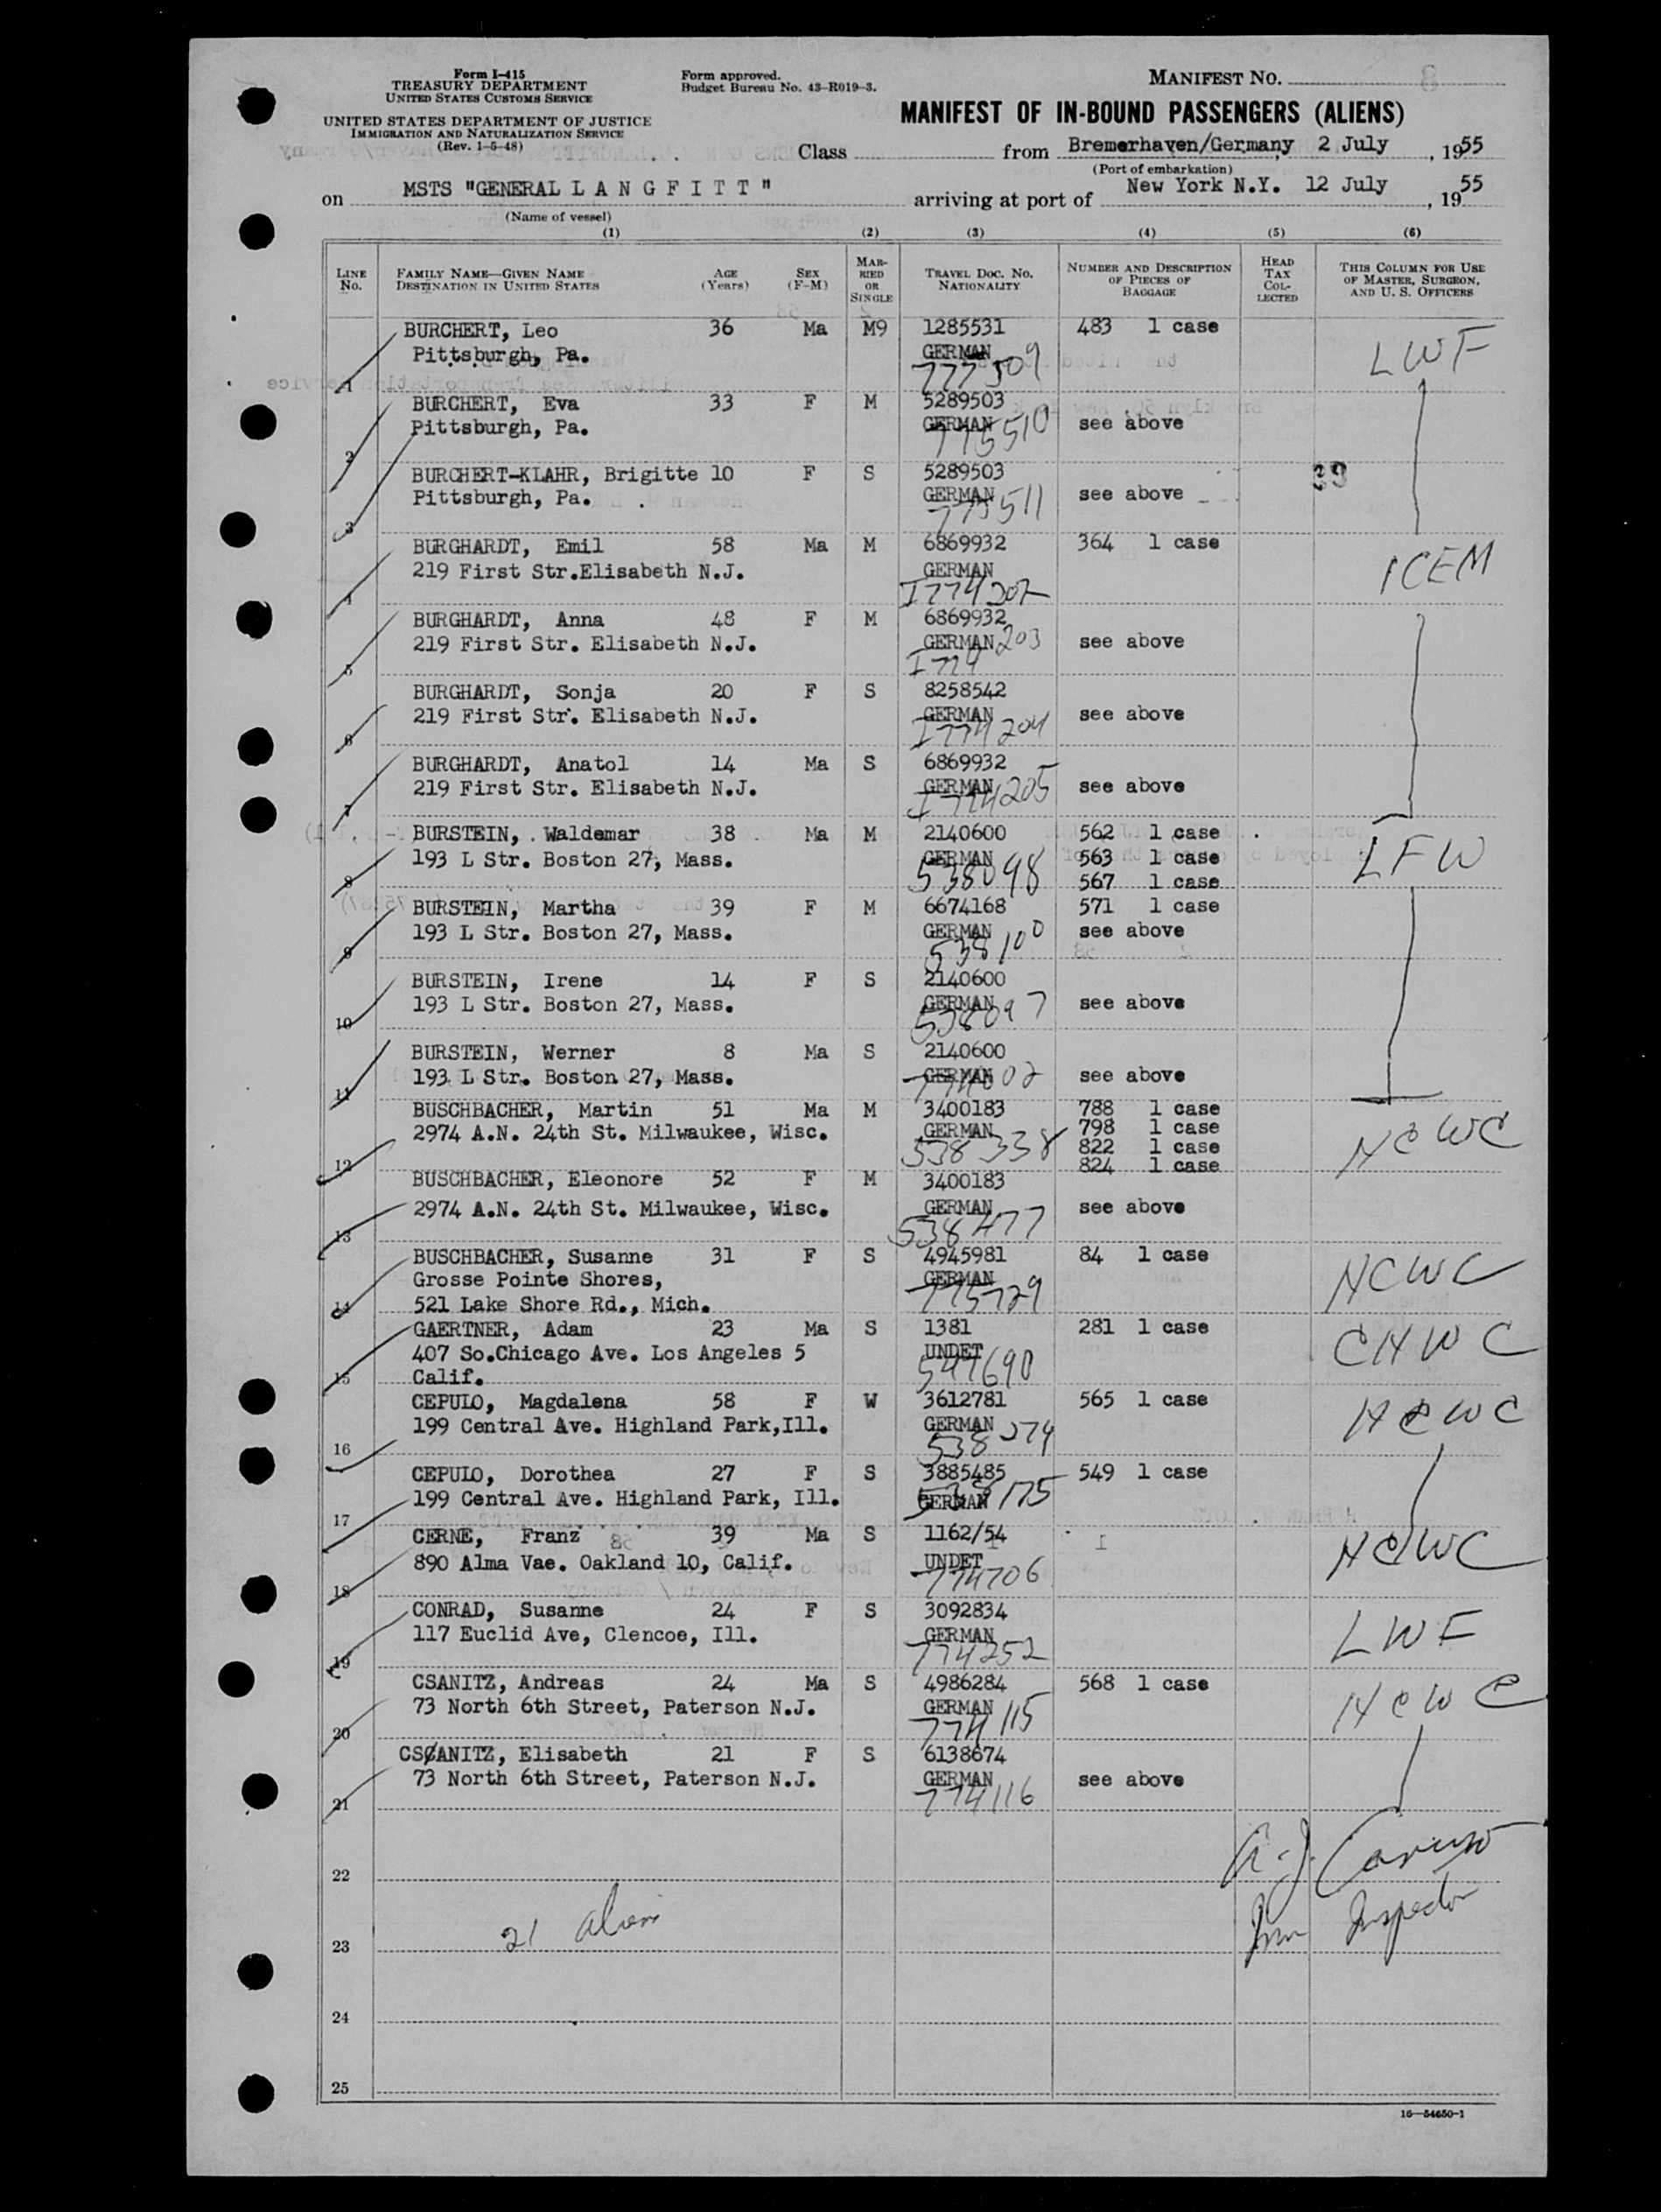 Form I-415
TREASURY DEPARTMENT
UNITED STATES CUSTOMS SERVICE
UNITED STATES DEPARTMENT OF JUSTICE
IMMIGRATION AND NATURALIZATION SERVICE
(Rev. 1-5-48)
Form approved.
Budget Bureau No. 43-R019-3.
MANIFEST NO. 8
MANIFEST OF IN-BOUND PASSENGERS (ALIENS)
Class from Bremerhaven/Germany 2 July, 1955
(Port of embarkation)
on MSTS "GENERAL L A N G F I T T" arriving at port of New York N.Y. 12 July, 1955
(Name of vessel)
(1) (2) (3) (4) (5) (6)
LINE No. FAMILY NAME—GIVEN NAME DESTINATION IN UNITED STATES AGE (Years) SEX (F-M) MARRIED OR SINGLE TRAVEL DOC. NO. NATIONALITY NUMBER AND DESCRIPTION OF PIECES OF BAGGAGE HEAD TAX COLLECTED THIS COLUMN FOR USE OF MASTER, SURGEON, AND U. S. OFFICERS
BURCHERT, Leo 36 Ma M9 1285531 483 1 case LWF
Pittsburgh, Pa. GERMAN
1 777509
BURCHERT, Eva 33 F M 5289503
Pittsburgh, Pa. GERMAN see above
2 775510
BURCHERT-KLAHR, Brigitte 10 F S 5289503 39
Pittsburgh, Pa. GERMAN see above
3 775511
BURGHARDT, Emil 58 Ma M 6869932 364 1 case ICEM
219 First Str.Elisabeth N.J. GERMAN
4 I774202
BURGHARDT, Anna 48 F M 6869932
219 First Str. Elisabeth N.J. GERMAN 203 see above
5 I774
BURGHARDT, Sonja 20 F S 8258542
219 First Str. Elisabeth N.J. GERMAN see above
6 I774204
BURGHARDT, Anatol 14 Ma S 6869932
219 First Str. Elisabeth N.J. GERMAN see above
7 I774205
BURSTEIN, Waldemar 38 Ma M 2140600 562 1 case LFW
193 L Str. Boston 27, Mass. GERMAN 563 1 case
8 538098 567 1 case
BURSTEIN, Martha 39 F M 6674168 571 1 case
193 L Str. Boston 27, Mass. GERMAN see above
9 538100
BURSTEIN, Irene 14 F S 2140600
193 L Str. Boston 27, Mass. GERMAN see above
10 538097
BURSTEIN, Werner 8 Ma S 2140600
193 L Str. Boston 27, Mass. GERMAN see above
11 774002
BUSCHBACHER, Martin 51 Ma M 3400183 788 1 case NCWC
2974 A.N. 24th St. Milwaukee, Wisc. GERMAN 798 1 case
538338 822 1 case
12 824 1 case
BUSCHBACHER, Eleonore 52 F M 3400183
2974 A.N. 24th St. Milwaukee, Wisc. GERMAN see above
13 538477
BUSCHBACHER, Susanne 31 F S 4945981 84 1 case NCWC
Grosse Pointe Shores, GERMAN
14 521 Lake Shore Rd., Mich. 775729
GAERTNER, Adam 23 Ma S 1381 281 1 case CHWC
407 So.Chicago Ave. Los Angeles 5 UNDET
15 Calif. 597690
CEPULO, Magdalena 58 F W 3612781 565 1 case NCWC
199 Central Ave. Highland Park,Ill. GERMAN
16 538274
CEPULO, Dorothea 27 F S 3885485 549 1 case
199 Central Ave. Highland Park, Ill. GERMAN
17
CERNE, Franz 39 Ma S 1162/54 NCWC
890 Alma Vae. Oakland 10, Calif. UNDET
18 774706
CONRAD, Susanne 24 F S 3092834 LWF
117 Euclid Ave, Clencoe, Ill. GERMAN
19 774252
CSANITZ, Andreas 24 Ma S 4986284 568 1 case NCWC
73 North 6th Street, Paterson N.J. GERMAN
20 774115
CSCANITZ, Elisabeth 21 F S 6138674
73 North 6th Street, Paterson N.J. GERMAN see above
21 774116
22 A. J. Caruso
23 21 aliens Imm Inspector
24
25
16—54650-1